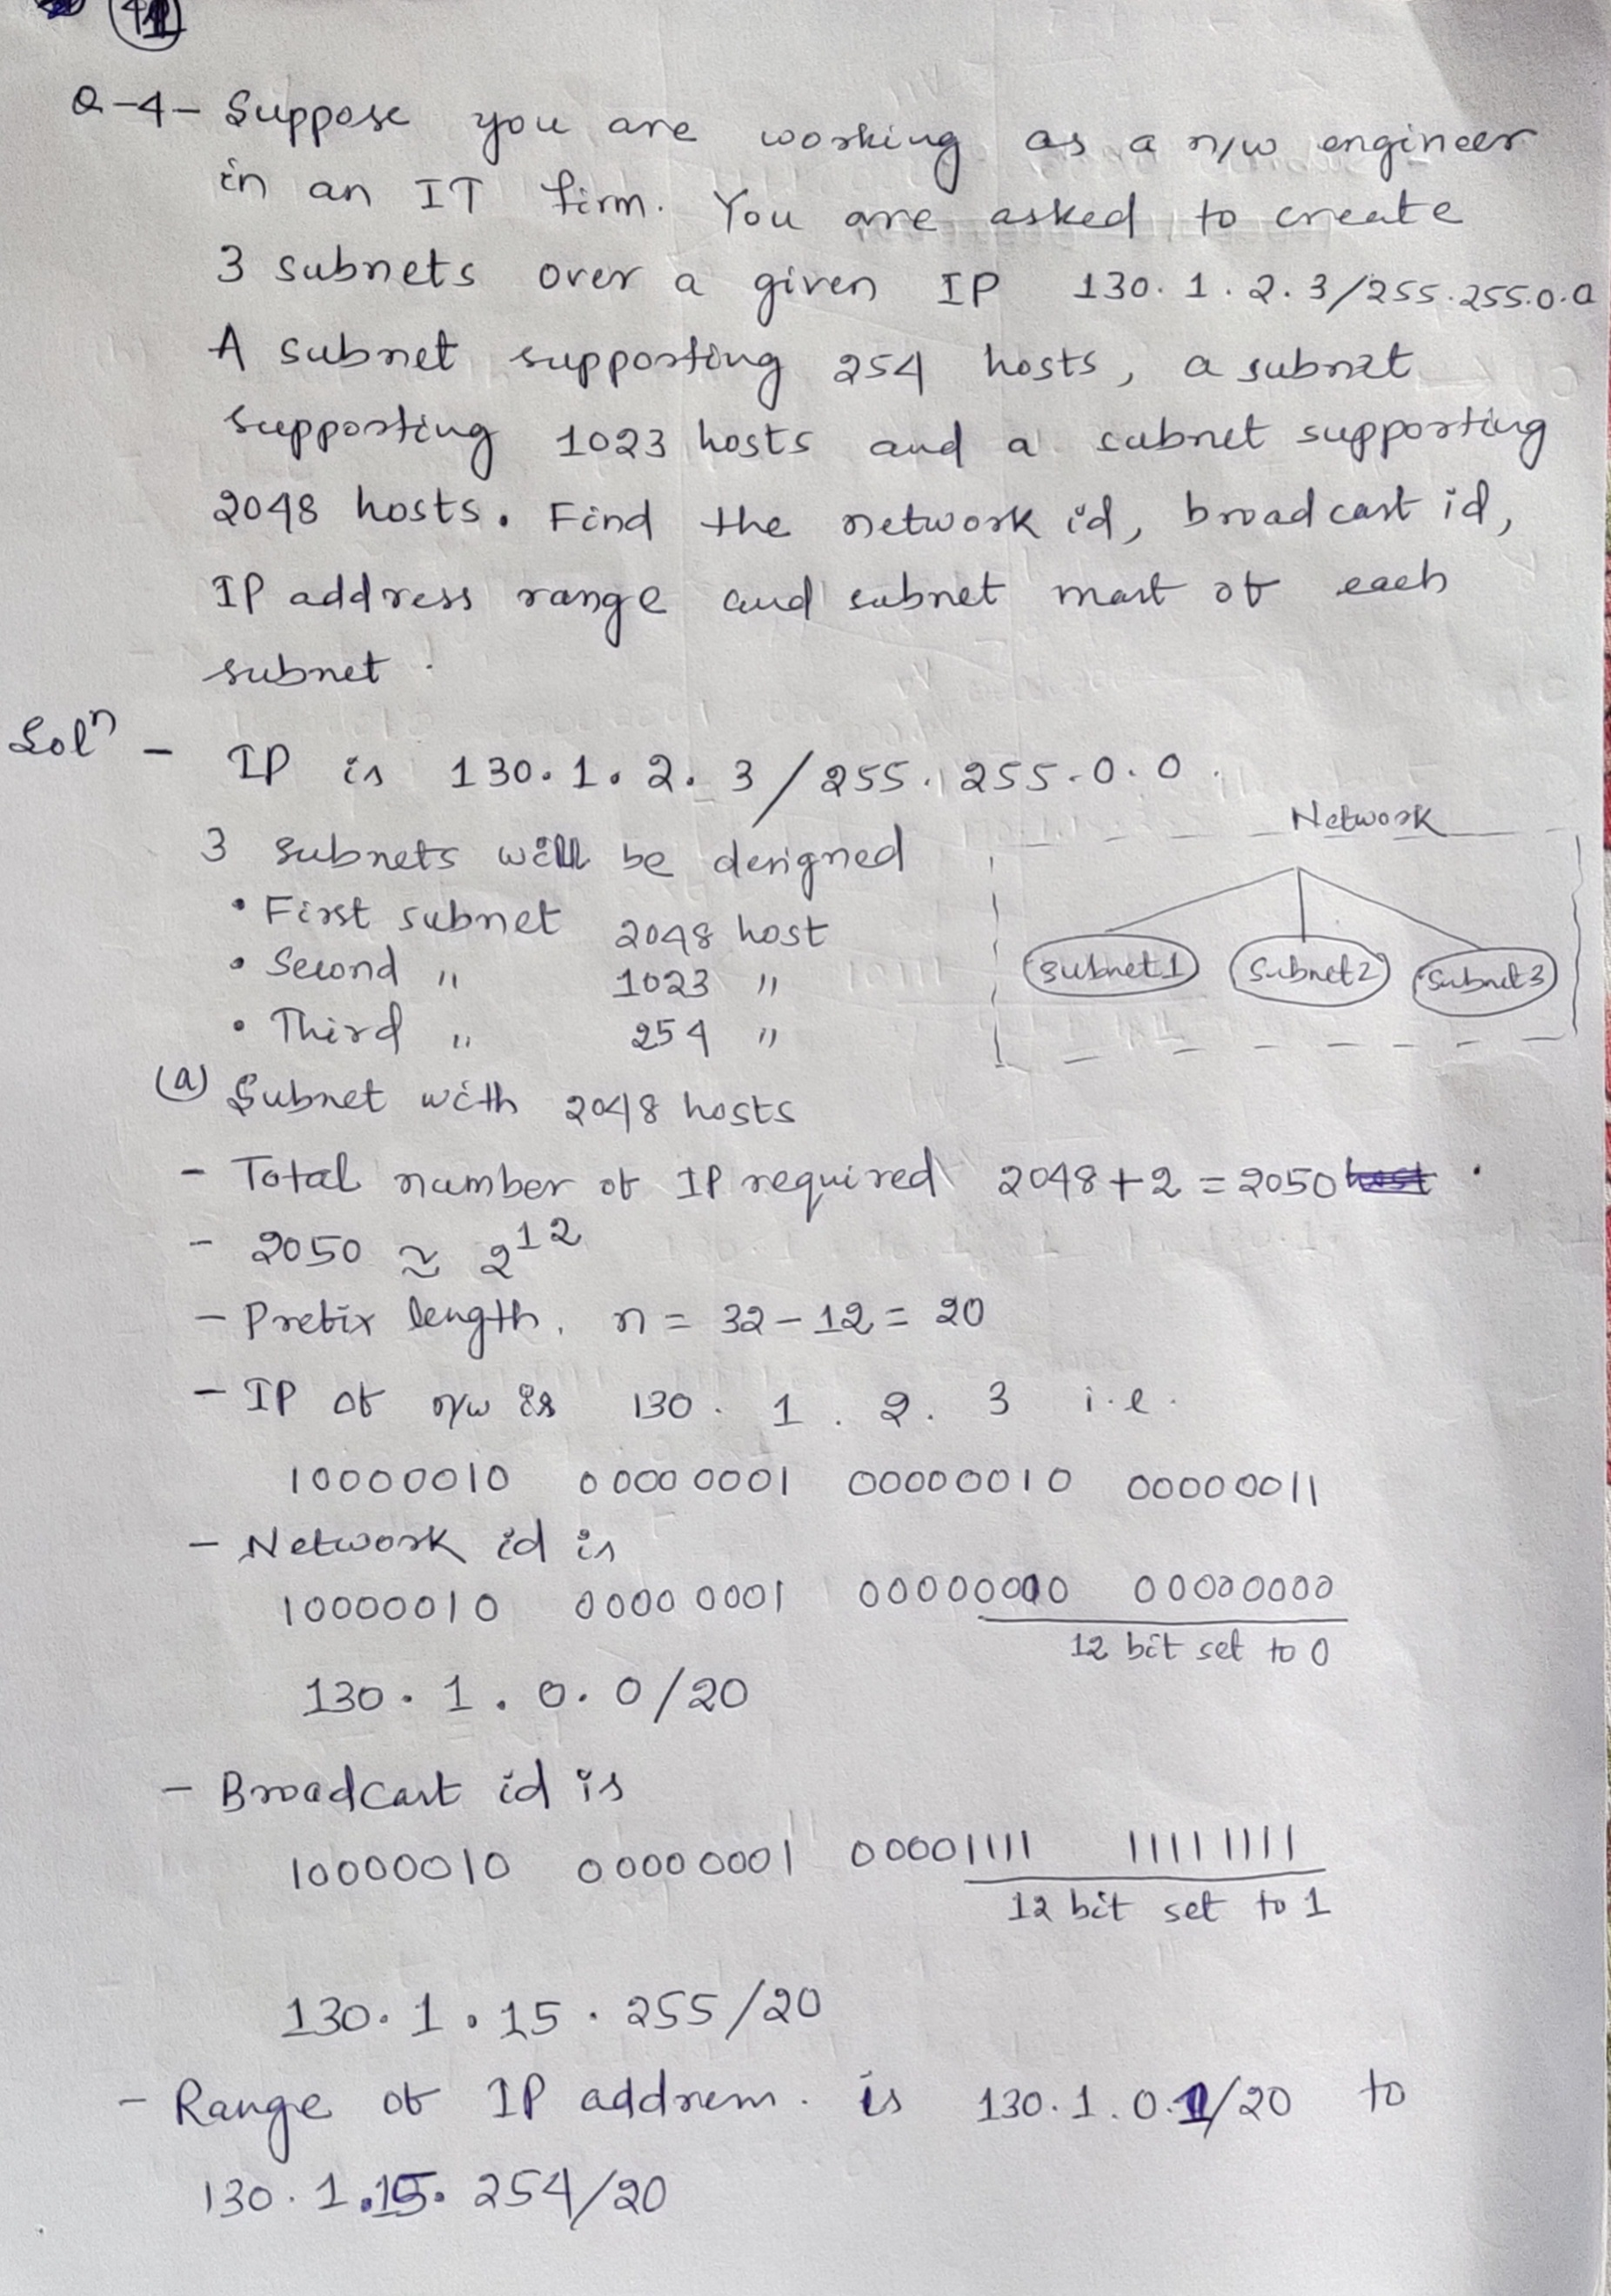 Q-4- Suppose you are working as a n/w engineer
in an IT firm. You are asked to create
3 subnets over a given IP 130.1.2.3/255.255.0.0
A subnet supporting 254 hosts, a subnet
supporting 1023 hosts and a subnet supporting
2048 hosts. Find the network id, broadcast id,
IP address range and subnet mast of each
subnet.
Solⁿ - IP is 130.1.2.3/255.255.0.0.
3 subnets will be designed
• First subnet 2048 host
• Second " 1023 "
• Third " 254 "
Network
Subnet1 Subnet2 Subnet3
(a) Subnet with 2048 hosts
- Total number of IP required 2048+2=2050
- 2050 ≃ 2¹²
- Prefix length, n = 32-12 = 20
- IP of n/w is 130 . 1 . 2 . 3 i.e.
10000010 00000001 00000010 00000011
- Network id is
10000010 00000001 00000000 00000000
12 bit set to 0
130.1.0.0/20
- Broadcast id is
10000010 00000001 00001111 11111111
12 bit set to 1
130.1.15.255/20
- Range of IP address. is 130.1.0.1/20 to
130.1.15.254/20